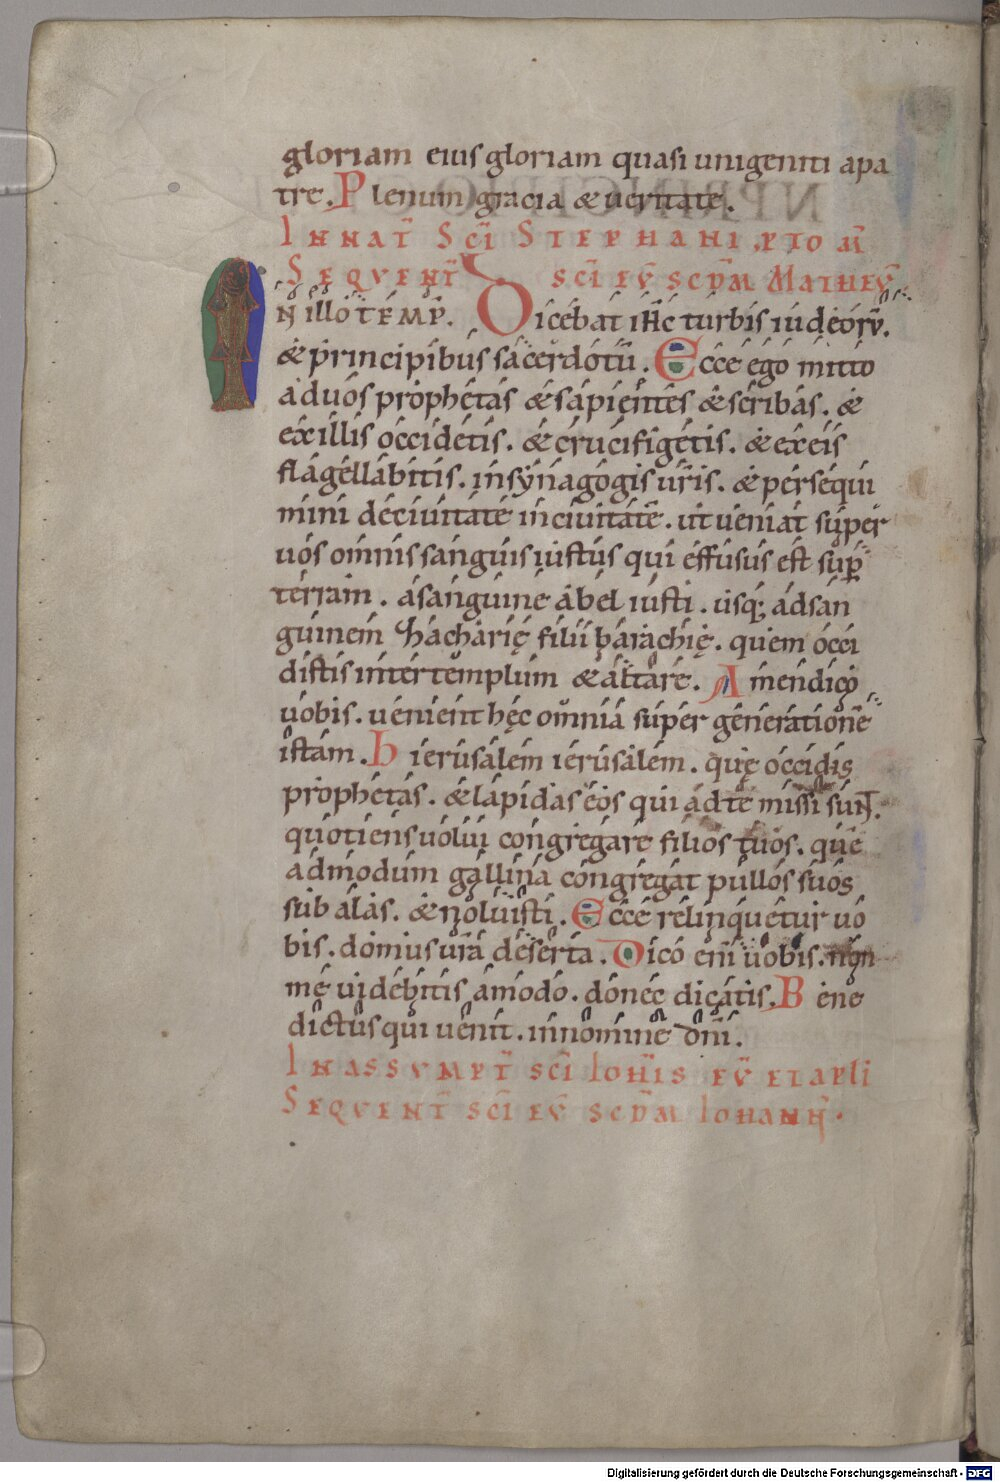 gloriam eius gloriam quasi unigeniti apa
tre. Plenum gracia & ueritate.
IN NAT̄ SC̄I STEPHANI PTOM̄
SEQVENT̄ SC̄I EV̄ SCD̄M MATHEV̄
IN illo TEMP̄. Dicebat ih̄c turbis iudeorū.
& principibus sacerdotū. Ecce ego mitto
ad uos prophetas & sapientes & scribas. &
ex illis occidetis. & crucifigetis. & ex eis
flagellabitis. in synagogis ur̄is. & persequi
mini de ciuitate in ciuitatē. ut ueniat super
uos omnis sanguis iustus qui effusus est sup̄
terram. a sanguine abel iusti. usq; ad san
guinem Zacharię filii barachię. quem occi
distis inter templum & altare. Amen dico
uobis. uenient hęc omnia super generationē
istam. Hierusalem ierusalem. quę occidis
prophetas. & lapidas eos qui ad te missi sunt.
quotiens uolui congregare filios tuos. que
admodum gallina congregat pullos suos
sub alas. & noluisti. Ecce relinquetur uo
bis. domus ur̄a deserta. Dico enī uobis. non
me uidebitis amodo. donec dicatis. Bene
dictus qui uenit. in nomine dn̄i.
IN ASSVMPT̄ SC̄I IOH̄IS EV̄ ET APLI
SEQVENT̄ SC̄I EV̄ SCD̄M IOHANN̄.
Digitalisierung gefördert durch die Deutsche Forschungsgemeinschaft - DFG